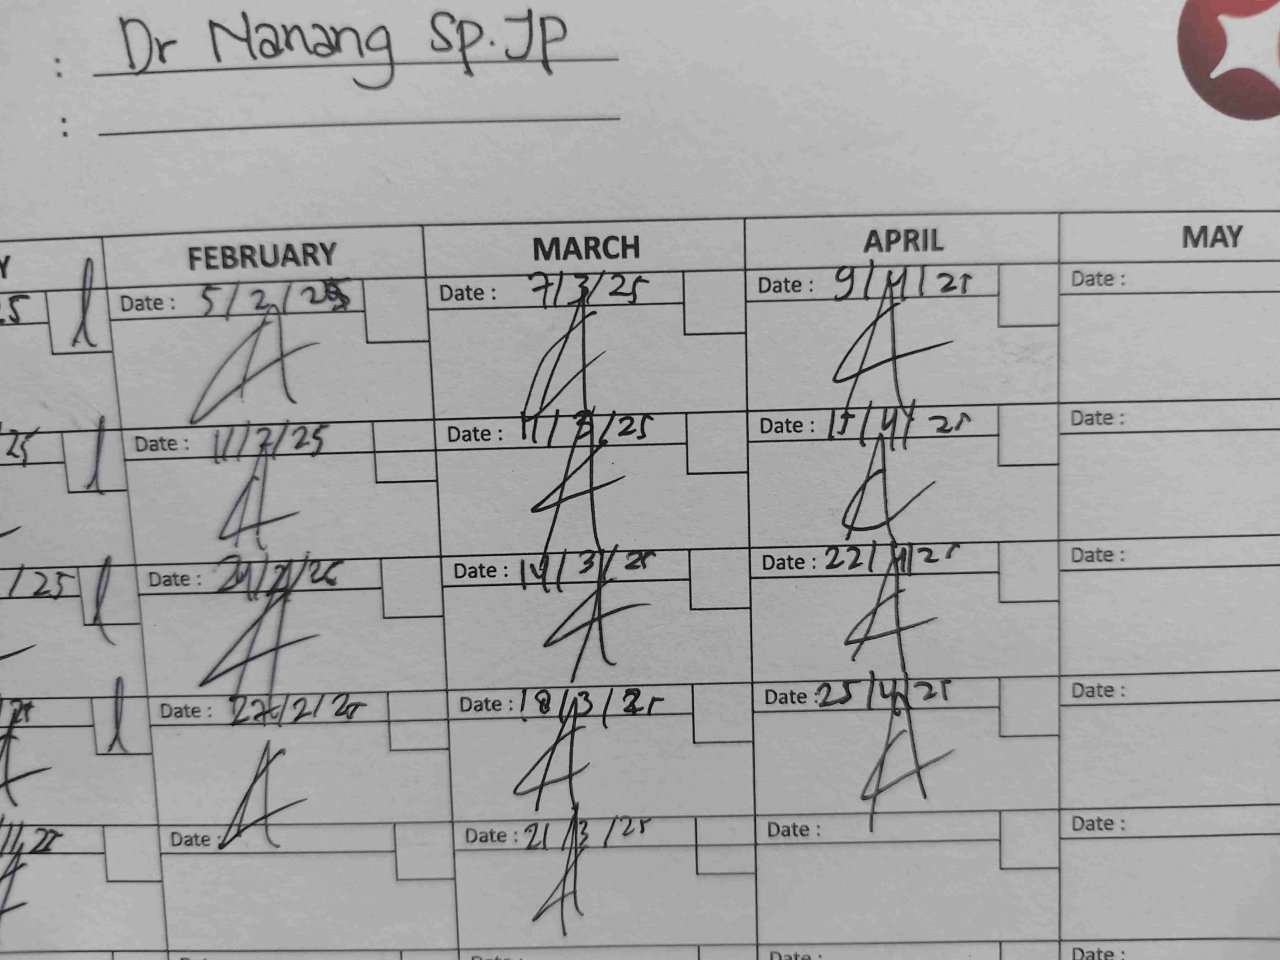 : Dr Nanang Sp.JP
:
Y FEBRUARY MARCH APRIL MAY
25 Date : 5/2/25 Date : 7/3/25 Date : 9/4/25 Date :
/25 Date : 11/2/25 Date : 11/3/25 Date : 15/4/25 Date :
/25 Date : 24/2/25 Date : 14/3/25 Date : 22/4/25 Date :
Date : 27/2/25 Date : 18/3/25 Date : 25/4/25 Date :
Date : Date : 21/3/25 Date : Date :
Date : Date : Date : Date :